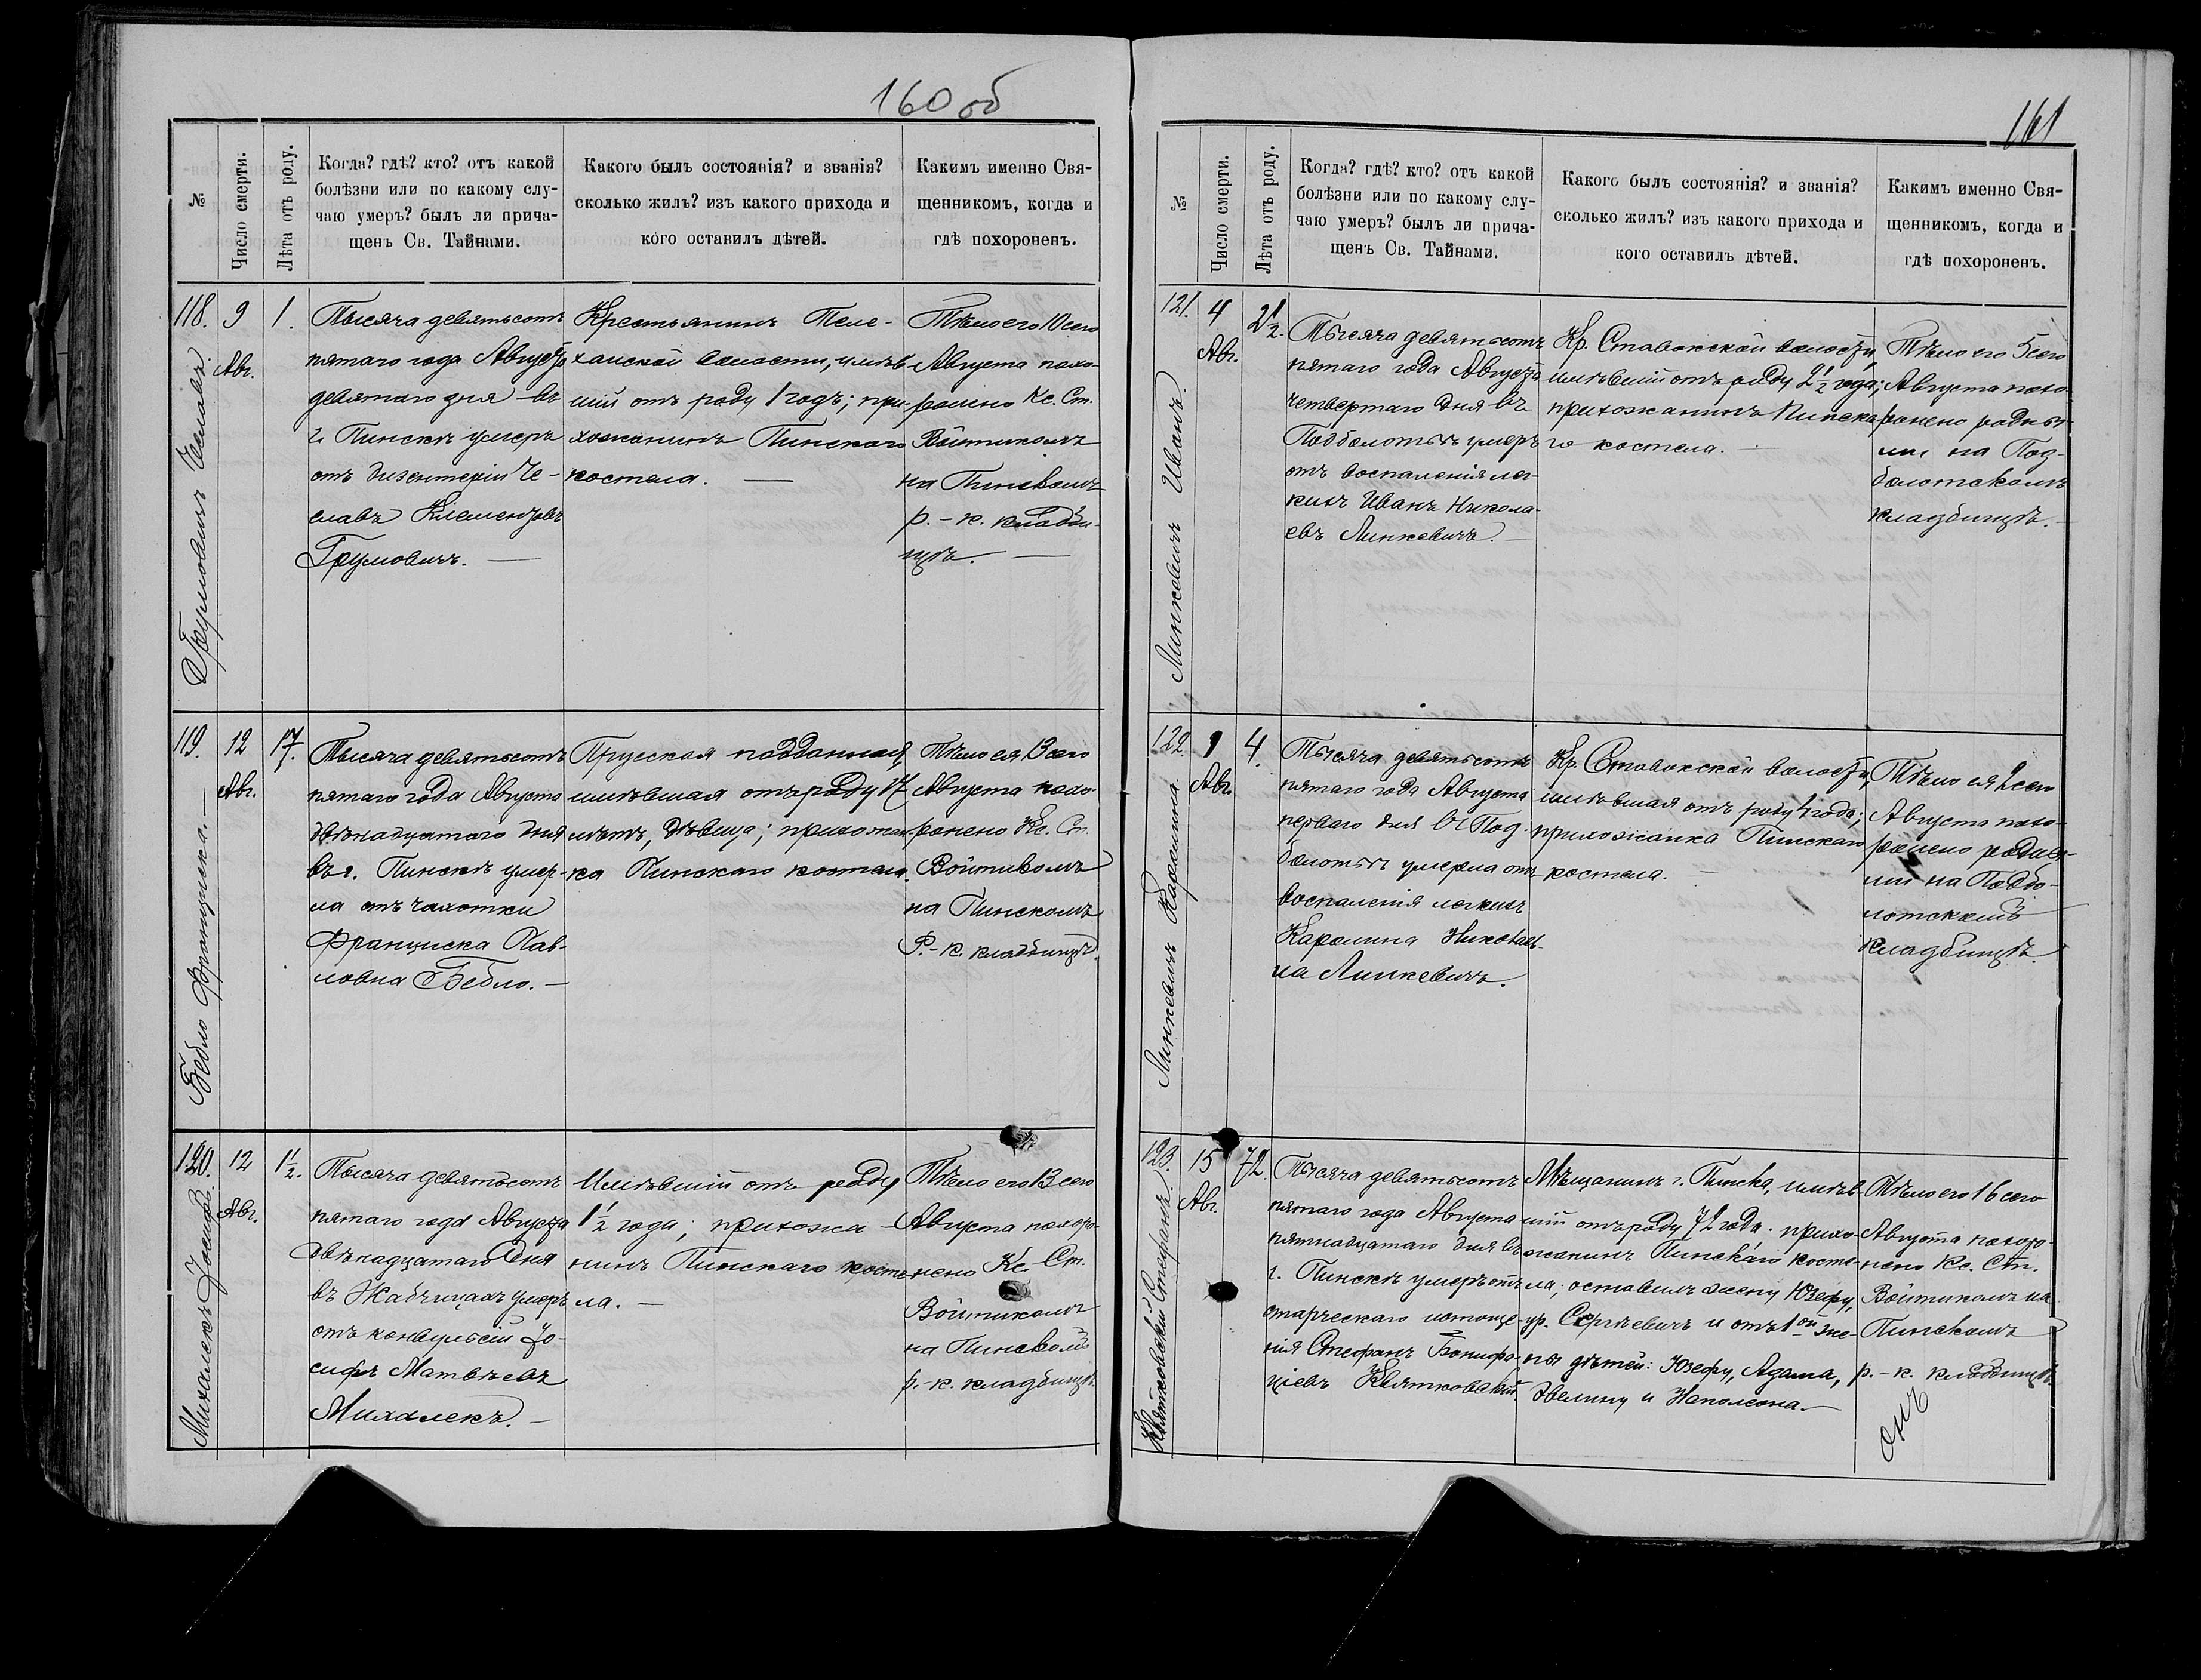 160 об
№
Число смерти.
Лѣта отъ роду.
Когда? гдѣ? кто? отъ какой
болѣзни или по какому слу-
чаю умеръ? былъ ли прича-
щенъ Св. Тайнами.
Какого былъ состоянія? и званія?
сколько жилъ? изъ какого прихода и
кого оставилъ дѣтей.
Какимъ именно Свя-
щенникомъ, когда и
гдѣ похороненъ.
118.
Грумовичъ Чеславъ
9
Авг.
1.
Тысяча девятьсотъ
пятаго года Августа
девятаго дня въ
г. Пинскѣ умеръ
отъ дизентеріи Че-
славъ Клементовъ
Грумовичъ. —
Крестьянинъ Теле-
ханской волости, имѣв-
шій отъ роду 1 годъ; при-
хожанинъ Пинскаго
костела. —
Тѣло его 10 сего
Августа похо-
ронено Кс. Ст.
Войтикомъ
на Пинскомъ
р.-к. кладби-
щѣ. —
119.
Бебло Франциска. —
12
Авг.
17.
Тысяча девятьсотъ
пятаго года Августа
двѣнадцатаго дня
въ г. Пинскѣ умер-
ла отъ чахотки
Франциска Пав-
ловна Бебло. —
Прусская подданная,
имѣвшая отъ роду 17
лѣтъ, дѣвица; прихожан-
ка Пинскаго костела.
Тѣло ея 13 сего
Августа похо-
ронено Кс. Ст.
Войтикомъ
на Пинскомъ
Р.-к. кладбищѣ.
120.
Михалекъ Іосифъ.
12
Авг.
1½.
Тысяча девятьсотъ
пятаго года Августа
двѣнадцатаго дня
въ Жабчицахъ умеръ
отъ конвульсіи Іо-
сифъ Матвѣевъ
Михалекъ. —
Имѣвшій отъ роду
1½ года; прихожа-
нинъ Пинскаго косте-
ла. —
Тѣло его 13 сего
Августа похоро-
нено Кс. Ст.
Войтикомъ
на Пинскомъ
р.-к. кладбищѣ.
161
№
Число смерти.
Лѣта отъ роду.
Когда? гдѣ? кто? отъ какой
болѣзни или по какому слу-
чаю умеръ? былъ ли прича-
щенъ Св. Тайнами.
Какого былъ состоянія? и званія?
сколько жилъ? изъ какого прихода и
кого оставилъ дѣтей.
Какимъ именно Свя-
щенникомъ, когда и
гдѣ похороненъ.
121.
Линкевичъ Иванъ.
4
Авг.
2½.
Тысяча девятьсотъ
пятаго года Августа
четвертаго дня въ
Подболотьѣ умеръ
отъ воспаленія лег-
кихъ Иванъ Никола-
евъ Линкевичъ. —
Кр. Ставокской волости,
имѣвшій отъ роду 2½ года;
прихожанинъ Пинска-
го костела. —
Тѣло его 5 сего
Августа похо-
ронено родны-
ми на Под-
болотскомъ
кладбищѣ. —
122.
Линкевичъ Каролина.
1
Авг.
4.
Тысяча девятьсотъ
пятаго года Августа
перваго дня въ Под-
болотьѣ умерла отъ
воспаленія легкихъ
Каролина Николаев-
на Линкевичъ.
Кр. Ставокской волости,
имѣвшая отъ роду 4 года;
прихожанка Пинскаго
костела. —
Тѣло ея 2 сего
Августа похо-
ронено родны-
ми на Подбо-
лотскомъ
кладбищѣ.
123.
Квятковскій Стефанъ
15
Авг.
72.
Тысяча девятьсотъ
пятаго года Августа
пятнадцатаго дня въ
г. Пинскѣ умеръ отъ
старческаго истоще-
нія Стефанъ Бонифа-
ціевъ Квятковскій.
Мѣщанинъ г. Пинска, имѣв-
шій отъ роду 72 года. прихо-
жанинъ Пинскаго косте-
ла; оставилъ жену Юзефу,
ур. Сергѣевичъ и отъ 1ой же-
ны дѣтей: Юзефу, Адама,
Эвелину и Наполеона. —
Тѣло его 16 сего
Августа похоро-
нено Кс. Ст.
Войтикомъ на
Пинскомъ
р.-к. кладбищѣ.